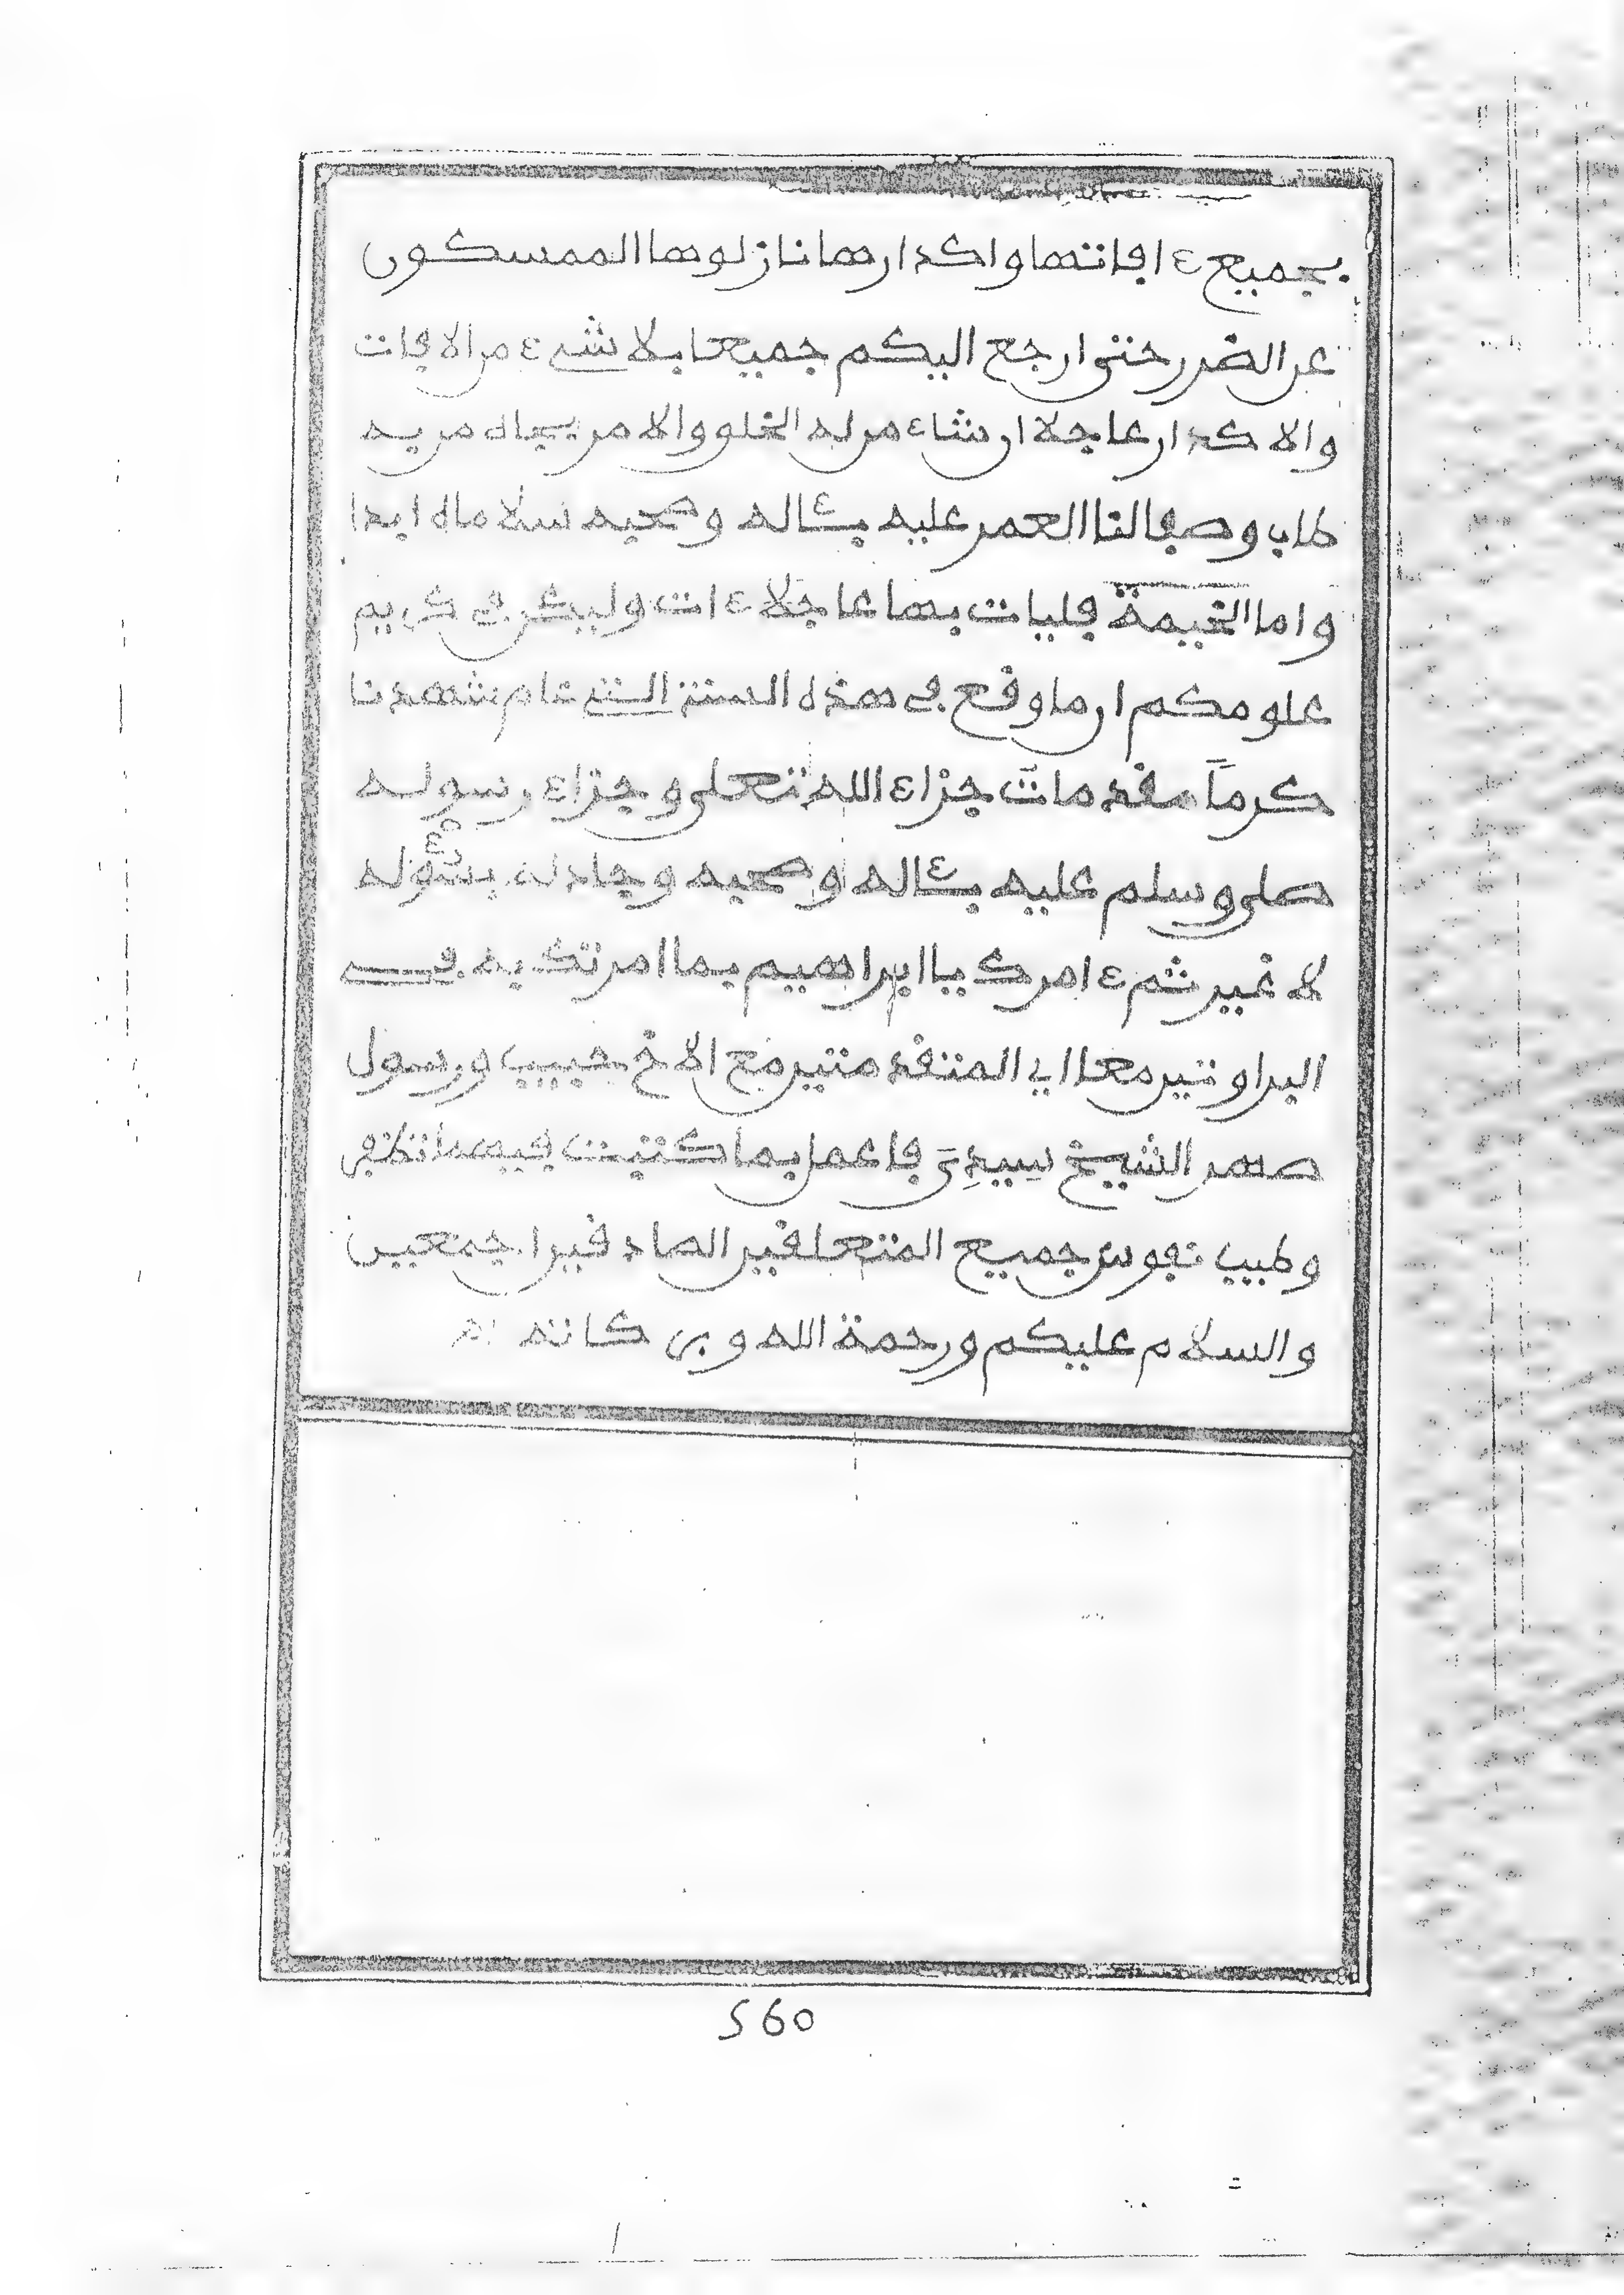 بجميع ءافاتها واكدارها نازلوها الممسكون
عن الضرر حتى ارجع اليكم جميعا بلا شىء من الافات
والاكدار عاجلا ان شاء من له الخلق والامر بجاه من به
طاب وصفا لنا العمر عليه بئاله وصحبه سلاماه ابدا
واما الخيمة فليات بها عاجلا ءات وليكن في كريم
علومكم ان ما وقع في هذه السنة التى شهدنا
كرما مقدمات جزاء الله تعلى وجزاء رسوله
صلى وسلم عليه بئاله وصحبه وجاد له بسؤله
لا غير ثم ءامرك يا ابراهيم بما امرتك به في
البراوتين معا اي المتقدمتين مع الاخ حبيب ورسول
صهر الشيخ سيدي فاعمل بما كتبت فيهما تلاقي
وطيب نفوس جميع المتعلقين الصادقين اجمعين
والسلام عليكم ورحمة الله وبركاته اه
560